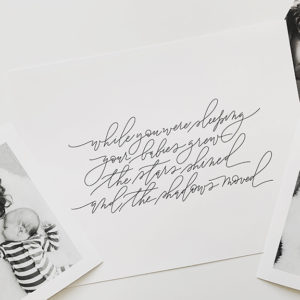 while you were sleeping
your babies grew
the stars shined
and the shadows moved